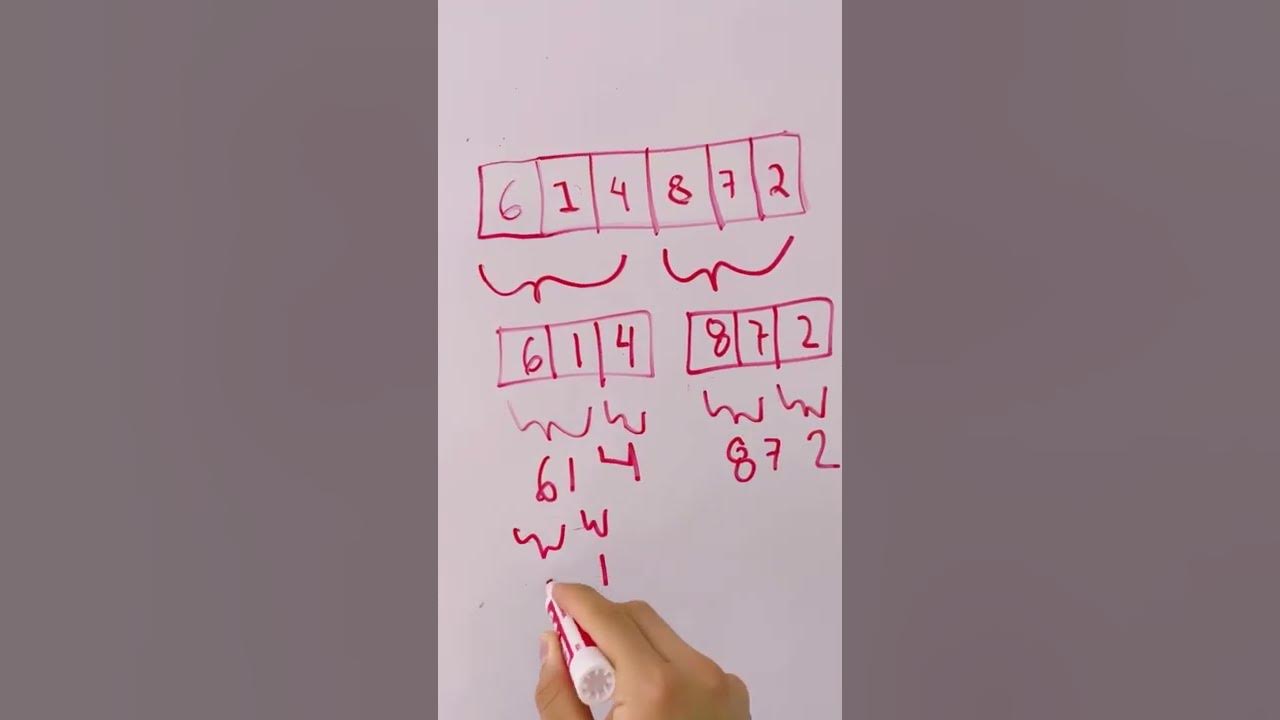 6 1 4 8 7 2
6 1 4 8 7 2
6 1 4 8 7 2
1